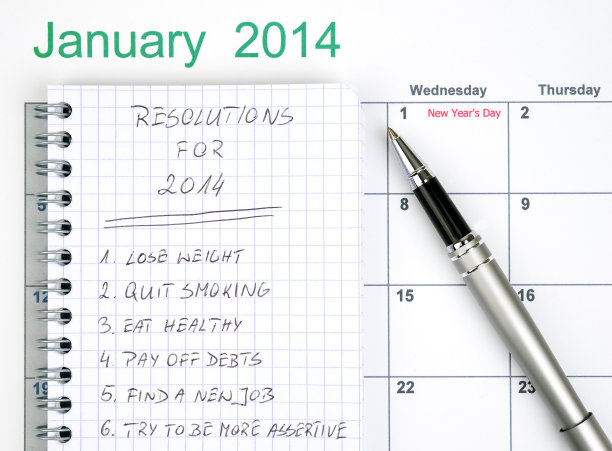 January 2014
Wednesday Thursday
1 New Year's Day 2
RESOLUTIONS
FOR
2014
1. LOSE WEIGHT
2. QUIT SMOKING
3. EAT HEALTHY
4. PAY OFF DEBTS
5. FIND A NEW JOB
6. TRY TO BE MORE ASSERTIVE
5 8 9
12 15 16
19 22 23